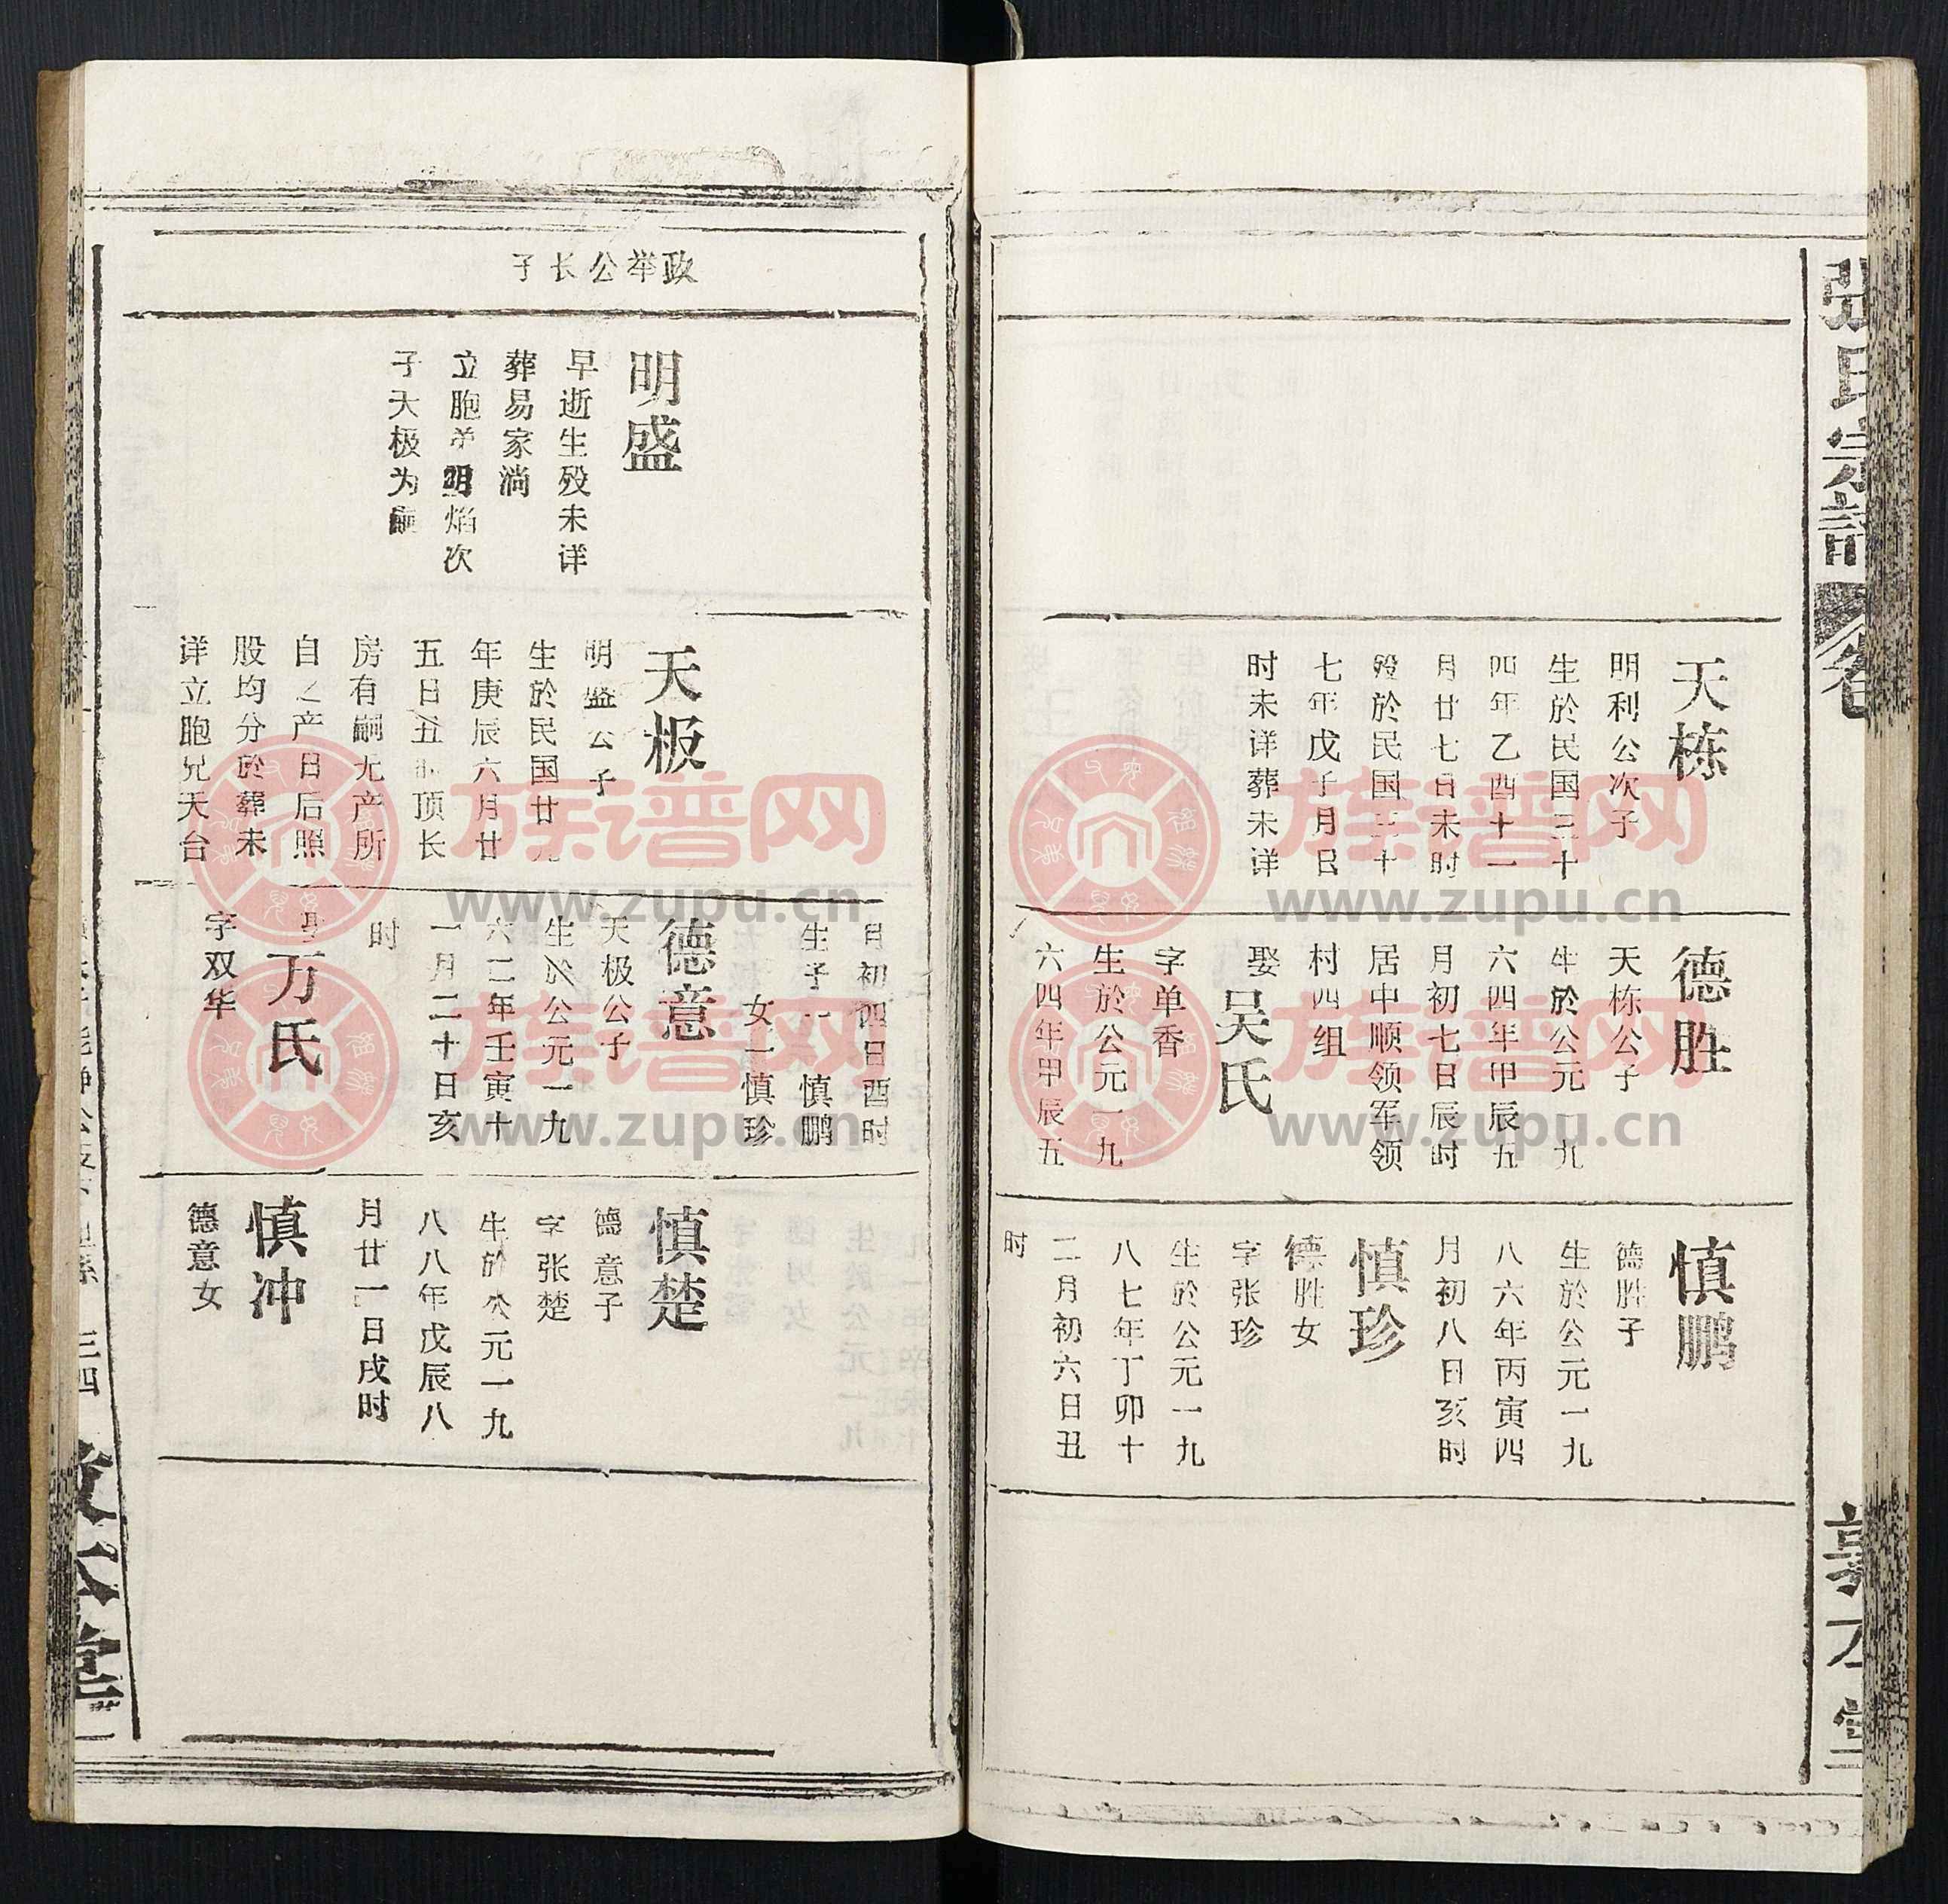 张氏宗譜
天栋
明利公次子
生於民国三十
四年乙酉十一
月廿七日未时
殁於民国三十
七年戊子月日
时未详葬未详
德胜
天栋公子
生於公元一九
六四年甲辰五
月初七日辰时
居中顺领军领
村四组
娶吴氏
字单香
生於公元一九
六四年甲辰五
慎鹏
德胜子
生於公元一九
八六年丙寅四
月初八日亥时
慎珍
德胜女
字张珍
生於公元一九
八七年丁卯十
二月初六日丑
时
政举公长子
明盛
早逝生殁未详
葬易家淌
立胞弟明焰次
子天极为嗣
天极
明盛公子
生於民国廿九
年庚辰六月廿
五日丑时顶长
房有嗣无产所
自之产日后照
股均分於葬未
详立胞兄天台
月初四日酉时
生子一 慎鹏
女一慎珍
德意
天极公子
生於公元一九
六二年壬寅十
一月二十日亥
时
万氏
字双华
慎楚
德意子
字张楚
生於公元一九
八八年戊辰八
月廿一日戌时
慎冲
德意女
三四
族谱网
www.zupu.cn
族谱网
www.zupu.cn
族谱网
www.zupu.cn
族谱网
www.zupu.cn